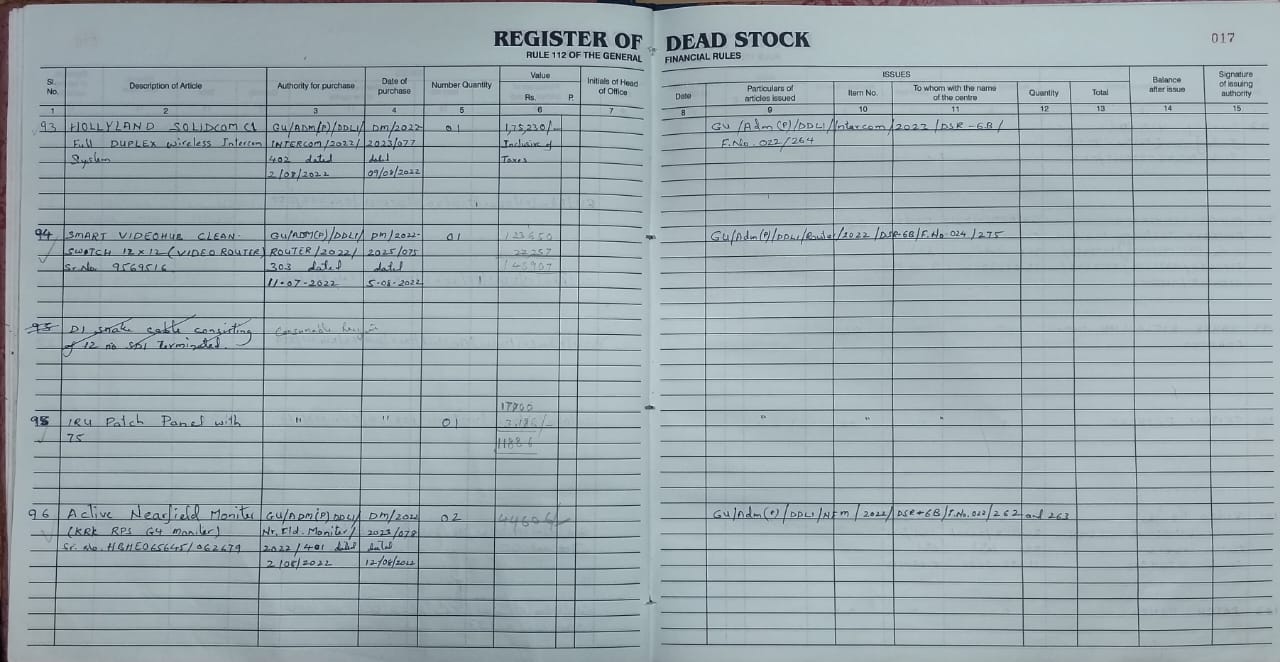 REGISTER OF DEAD STOCK
RULE 112 OF THE GENERAL FINANCIAL RULES
017
Sl. No. Description of Article Authority for purchase Date of purchase Number Quantity Value Rs. P. Initials of Head of Office
Date Particulars of articles issued Item No. To whom with the name of the centre Quantity Total Balance after issue Signature of issuing authority
ISSUES
1 2 3 4 5 6 7 8 9 10 11 12 13 14 15
93 HOLLYLAND SOLIDCOM C1 GU/ADM(P)/DDLI/ DM/2022- 01 1,75,230/- GU/Adm(P)/DDLI/Intercom/2022/DSR-6B/
Full DUPLEX wireless Intercom INTERCOM/2022/ 2023/077 Inclusive of F.No. 022/264
System 402 dated datd Taxes
2/08/2022 09/08/2022
94 SMART VIDEOHUB CLEAN- GU/ADM(P)/DDLI/ DM/2022- 01 123650 GU/Adm(P)/DDLI/Router/2022/DSR-6B/F.No. 024/275
SWATCH 12x12 (VIDEO ROUTER) ROUTER/2022/ 2023/075 22257
Sr. No. 9569516 303 dated datd 145907
11-07-2022 5-08-2022
95 DI snake cable consisting Consumable
of 12 no SDI Terminated.
95 1RU Patch Panel with " " 01 " " "
75
96 Active Nearfield Moniter GU/ADM(P)DDLI/ DM/2022 02 GU/Adm(P)/DDLI/NFM/2022/DSR-6B/F.No. 022/262 and 263
(KRK RPS G4 moniter) Nr. Fld. Moniter/ 2023/078
Sr. No. HBHE065645/062679 2022/401 dated dated
2/08/2022 12/08/2022